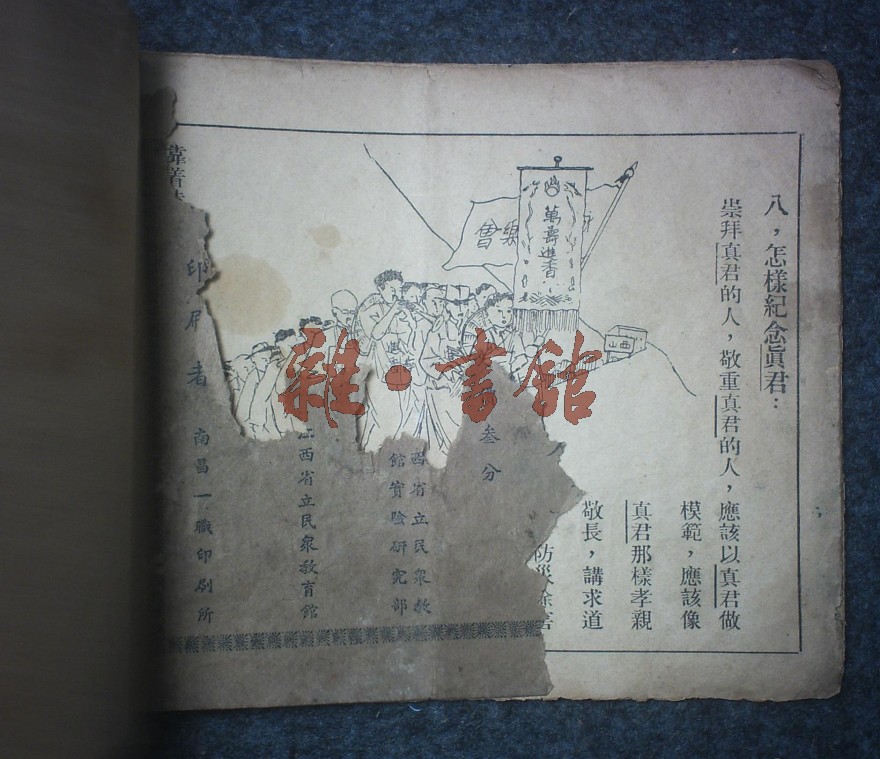 八，怎樣紀念眞君：
崇拜真君的人，敬重真君的人，應該以真君做
模範，應該像
真君那樣孝親
敬長，講求道
防災除害
萬壽進香
會
西山
叁分
西省立民衆教
館實驗研究部
江西省立民衆教育館
印刷者
南昌一職印刷所
雜·書館